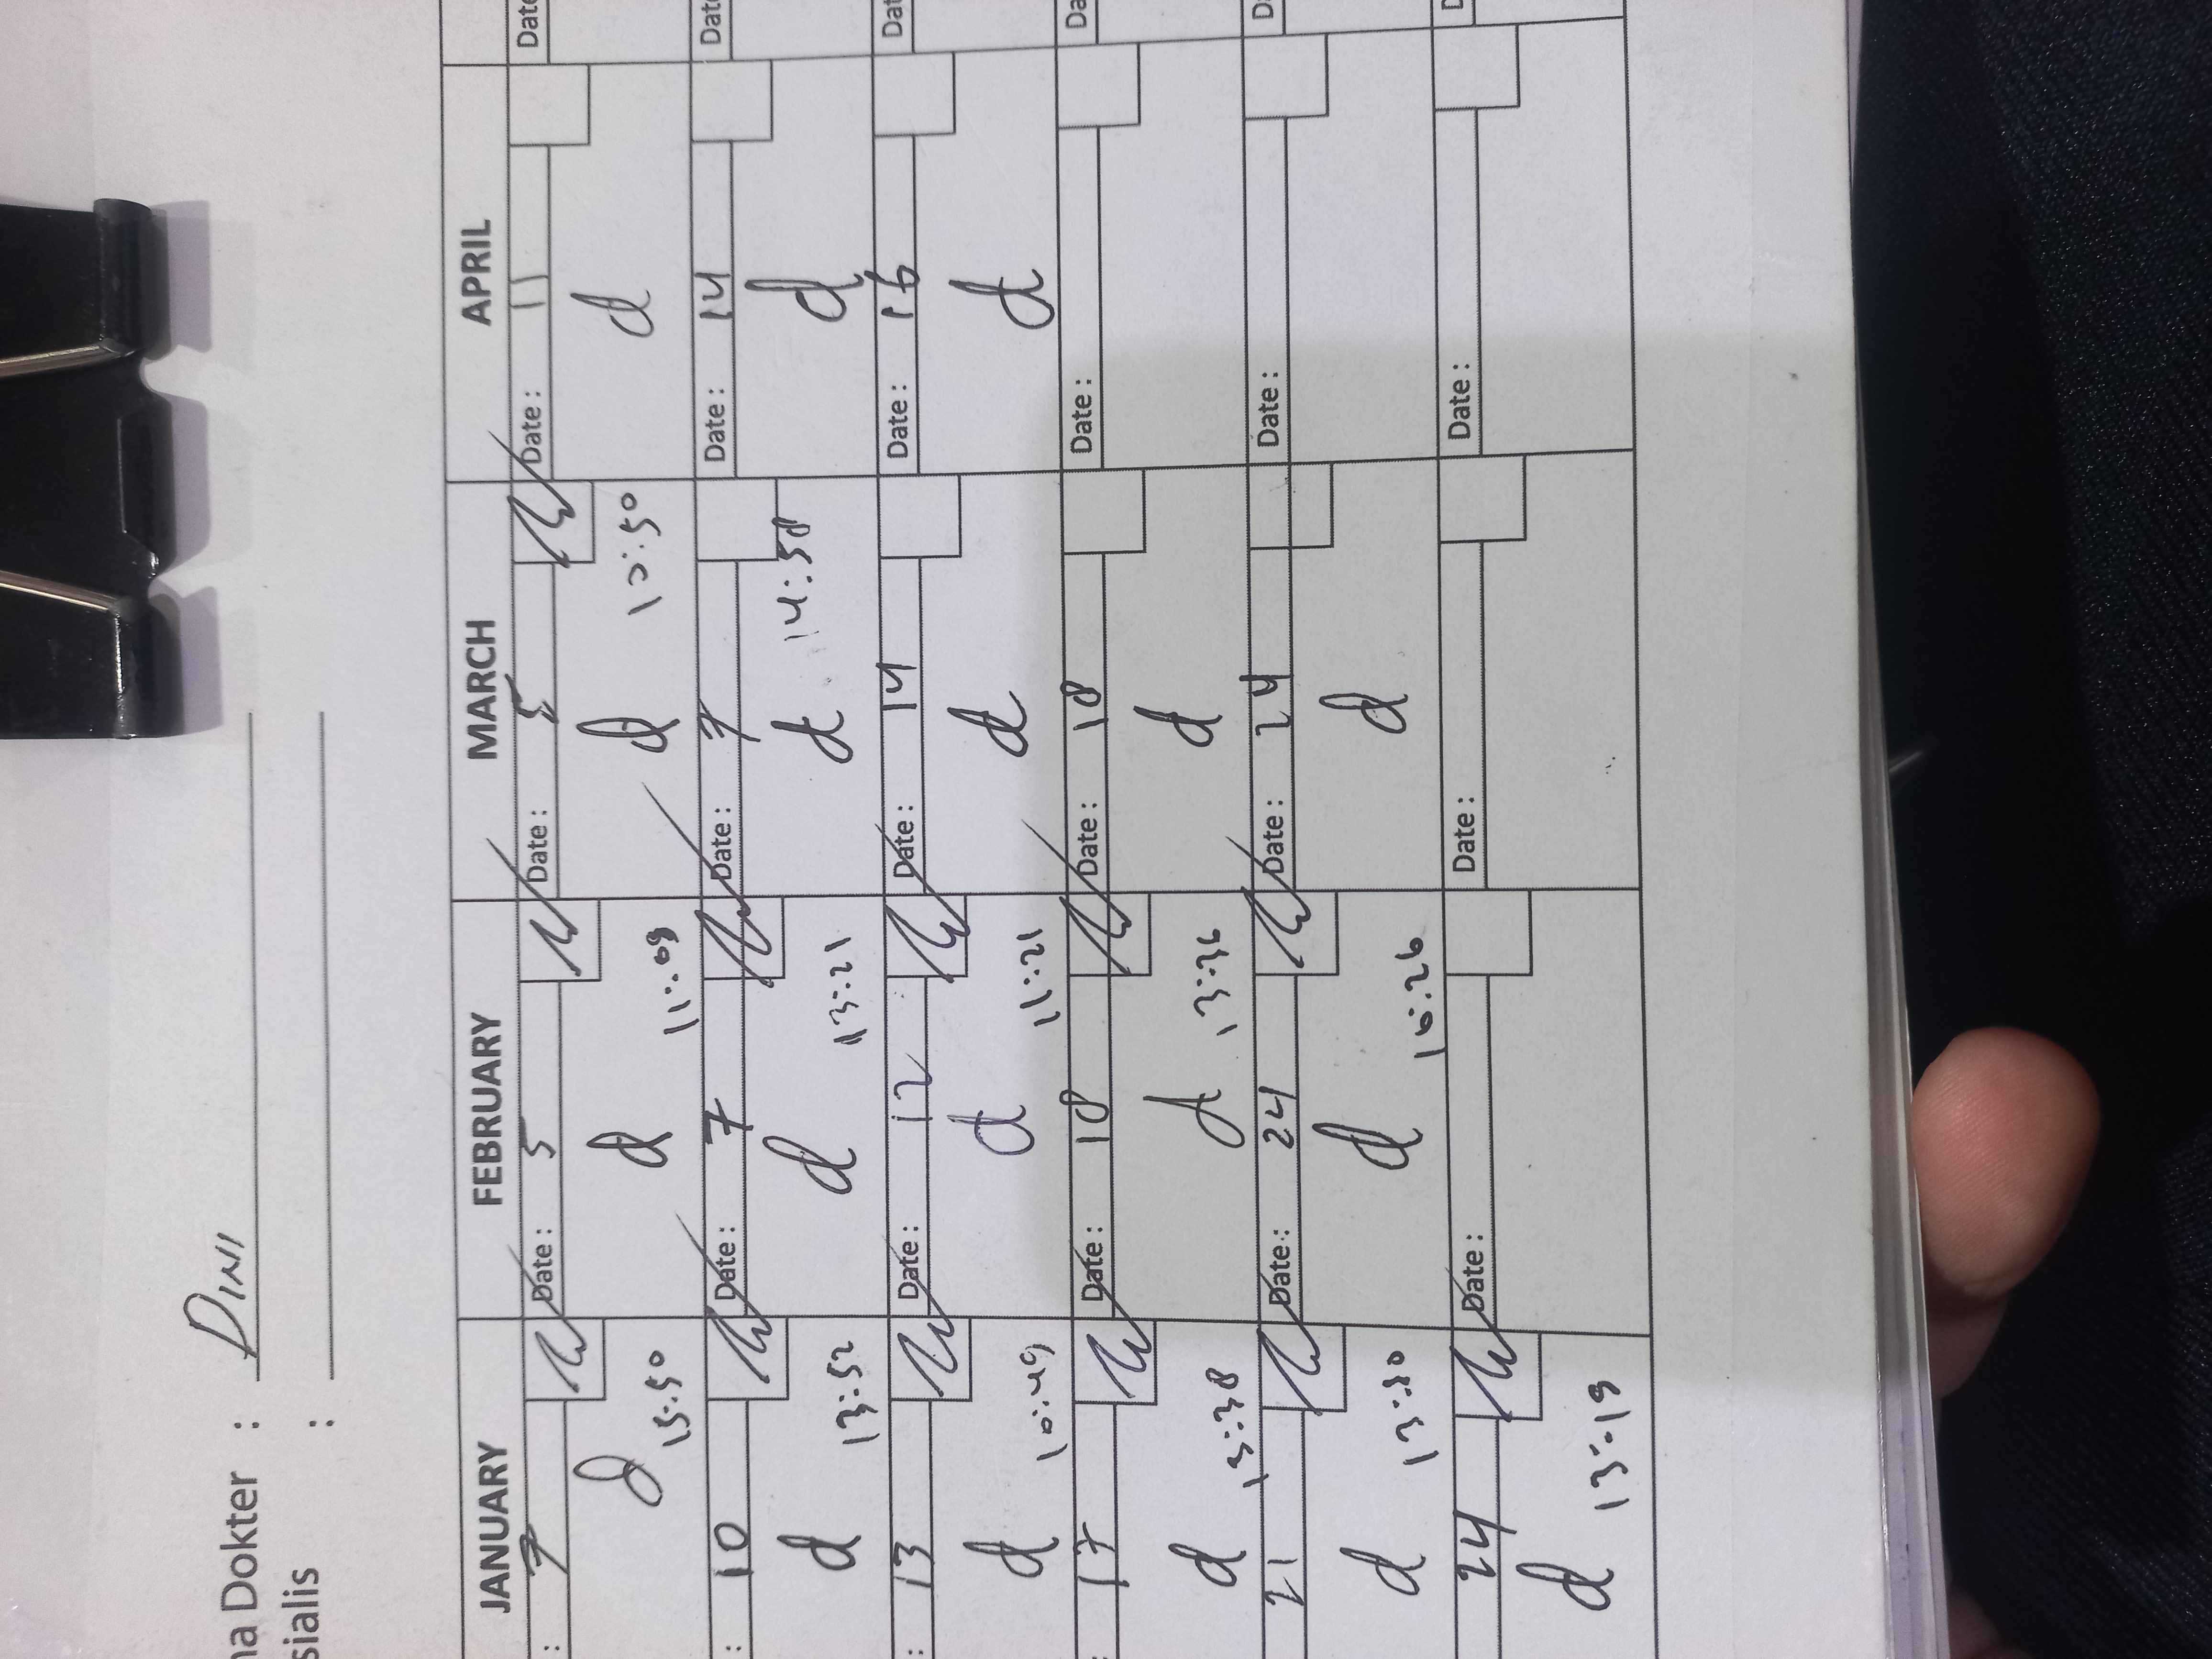 na Dokter : DINI
sialis :
JANUARY FEBRUARY MARCH APRIL
: 7 Date : 5 Date : 5 Date : 11 Date
d d d d
15:50 11:09 10:50
: 10 Date : 7 Date : 7 Date : 14 Date
d d d d
13:52 13:21 14:58
: 13 Date : 12 Date : 14 Date : 16 Dat
d d d d
10:49 11:21
: 17 Date : 18 Date : 18 Date : Da
d d d
13:38 13:36
21 Date : 24 Date : 24 Date : Da
d d d
13:30 10:26
24 Date : Date : Date : D
d
13:19